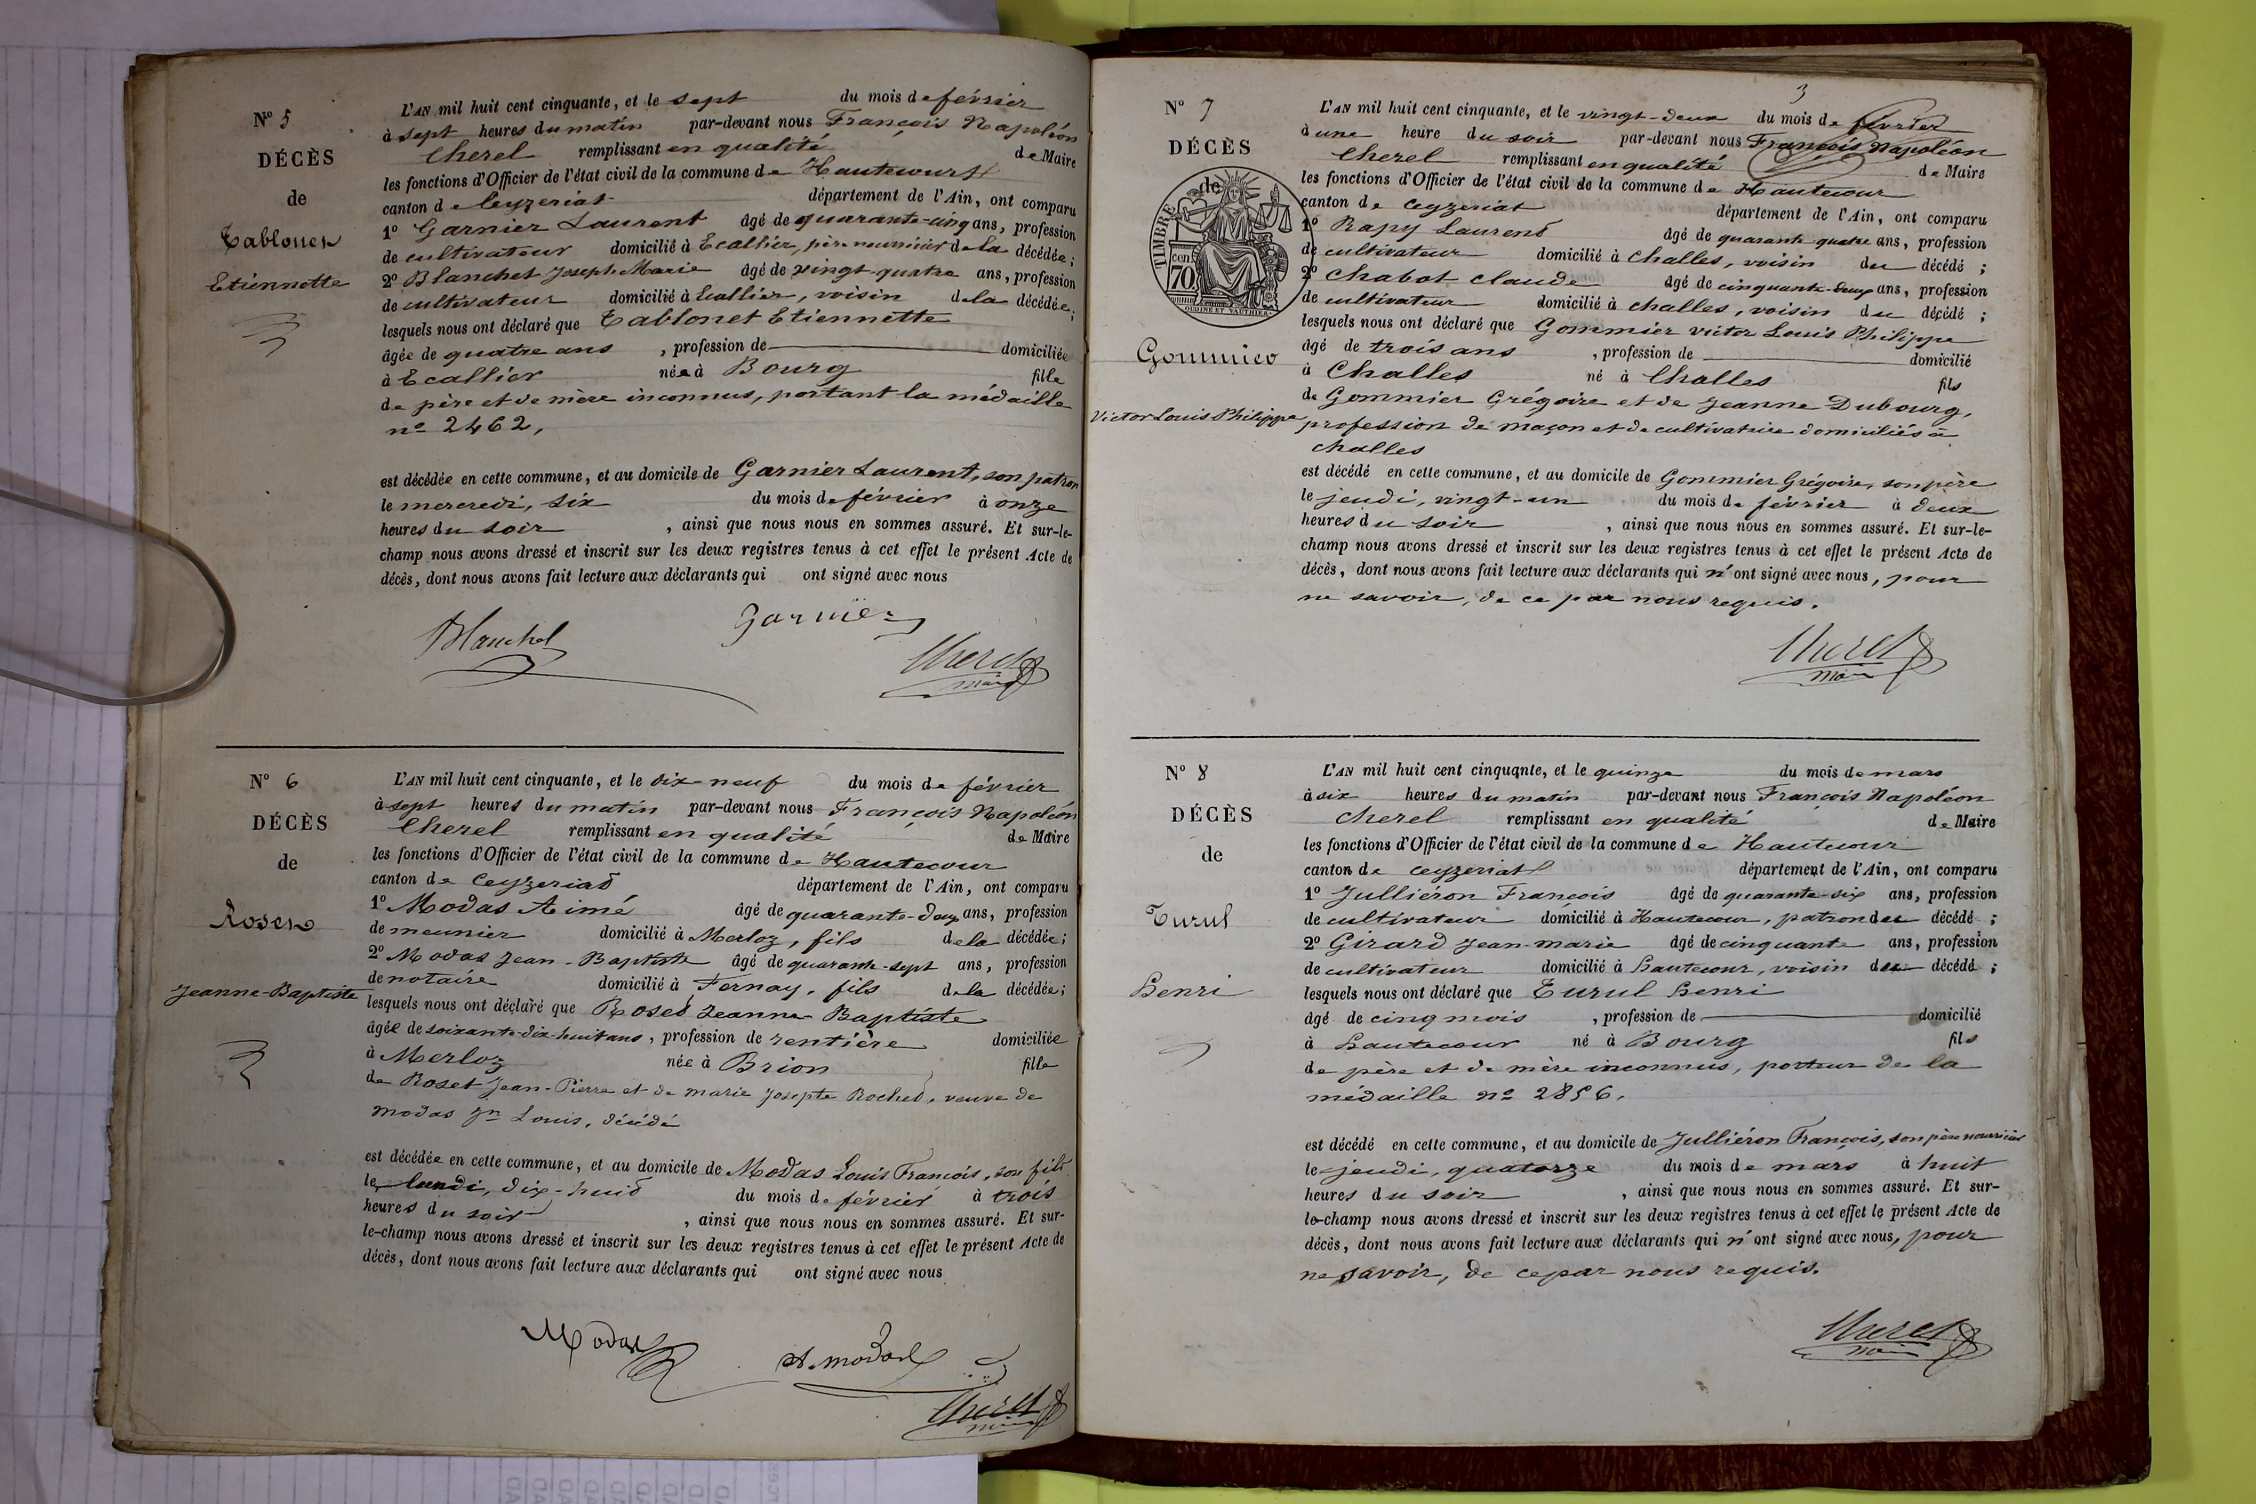 Nº 5
DÉCÈS
de
Tablonet
Etiennette
L'AN mil huit cent cinquante, et le sept du mois de février
à sept heures du matin par-devant nous François Napoléon
Cherel remplissant en qualité de Maire
les fonctions d'Officier de l'état civil de la commune de Hautecourt
canton de Ceyzeriat département de l'Ain, ont comparu
1º Garnier Laurent âgé de quarante-cinq ans, profession
de cultivateur domicilié à Ecallier, père nourricier de la décédée;
2º Blanchet Joseph Marie âgé de vingt-quatre ans, profession
de cultivateur domicilié à Ecallier, voisin de la décédée;
lesquels nous ont déclaré que Tablonet Etiennette
âgée de quatre ans , profession de domiciliée
à Ecallier née à Bourg fille
de père et de mère inconnus, portant la médaille
nº 2462,
est décédée en cette commune, et au domicile de Garnier Laurent, son patron
le mercredi, six du mois de février à onze
heures du soir , ainsi que nous nous en sommes assuré. Et sur-le-
champ nous avons dressé et inscrit sur les deux registres tenus à cet effet le présent Acte de
décès, dont nous avons fait lecture aux déclarants qui ont signé avec nous
Blanchet Garnier
Cherel
maire
Nº 6
DÉCÈS
de
Roset
Jeanne-Baptiste
L'AN mil huit cent cinquante, et le dix-neuf du mois de février
à sept heures du matin par-devant nous François Napoléon
Cherel remplissant en qualité de Maire
les fonctions d'Officier de l'état civil de la commune de Hautecour
canton de Ceyzeriat département de l'Ain, ont comparu
1º Modas Aimé âgé de quarante-deux ans, profession
de meunier domicilié à Merloz, fils de la décédée;
2º Modas Jean-Baptiste âgé de quarante-sept ans, profession
de notaire domicilié à Fernay, fils de la décédée;
lesquels nous ont déclaré que Roset Jeanne Baptiste
âgée de soixante-dix-huit ans, profession de rentière domiciliée
à Merloz née à Brion fille
de Roset Jean-Pierre et de marie Josepte Rochet, veuve de
modas Jn Louis, décédé
est décédée en cette commune, et au domicile de Modas Louis François, son fils
le lundi, dix-huit du mois de février à trois
heures du soir , ainsi que nous nous en sommes assuré. Et sur-
le-champ nous avons dressé et inscrit sur les deux registres tenus à cet effet le présent Acte de
décès, dont nous avons fait lecture aux déclarants qui ont signé avec nous
Modas A. modas
Cherel
maire
3
Nº 7
DÉCÈS
de
TIMBRE
70 cent
OUDINÉ ET VAUTHIER
Gommier
Victor Louis Philippe
L'AN mil huit cent cinquante, et le vingt-deux du mois de février
à une heure du soir par-devant nous François Napoléon
Cherel remplissant en qualité de Maire
les fonctions d'Officier de l'état civil de la commune de Hautecour
canton de Ceyzeriat département de l'Ain, ont comparu
1º Rapy Laurent âgé de quarante quatre ans, profession
de cultivateur domicilié à Challes, voisin du décédé;
2º Chabot claude âgé de cinquante-deux ans, profession
de cultivateur domicilié à challes, voisin du décédé;
lesquels nous ont déclaré que Gommier victor Louis Philippe
âgé de trois ans , profession de domicilié
à Challes né à Challes fils
de Gommier Grégoire et de Jeanne Dubourg,
profession de maçon et de cultivatrice domiciliés à
challes
est décédé en cette commune, et au domicile de Gommier Grégoire, son père
le jeudi, vingt-un du mois de février à deux
heures du soir , ainsi que nous nous en sommes assuré. Et sur-le-
champ nous avons dressé et inscrit sur les deux registres tenus à cet effet le présent Acte de
décès, dont nous avons fait lecture aux déclarants qui n'ont signé avec nous, pour
ne savoir, de ce par nous requis.
Cherel
maire
Nº 8
DÉCÈS
de
Turul
henri
L'AN mil huit cent cinquante, et le quinze du mois de mars
à six heures du matin par-devant nous François Napoléon
Cherel remplissant en qualité de Maire
les fonctions d'Officier de l'état civil de la commune de Hautecour
canton de Ceyzeriat département de l'Ain, ont comparu
1º Julliéron François âgé de quarante-six ans, profession
de cultivateur domicilié à Hautecour, patron du décédé;
2º Girard Jean-marie âgé de cinquante ans, profession
de cultivateur domicilié à hautecour, voisin du décédé;
lesquels nous ont déclaré que Turul henri
âgé de cinq mois , profession de domicilié
à hautecour né à Bourg fils
de père et de mère inconnus, porteur de la
médaille nº 2856,
est décédé en cette commune, et au domicile de Julliéron François, son père nourricier
le jeudi, quatorze du mois de mars à huit
heures du soir , ainsi que nous nous en sommes assuré. Et sur-
le-champ nous avons dressé et inscrit sur les deux registres tenus à cet effet le présent Acte de
décès, dont nous avons fait lecture aux déclarants qui n'ont signé avec nous, pour
ne savoir, de ce par nous requis.
Cherel
maire